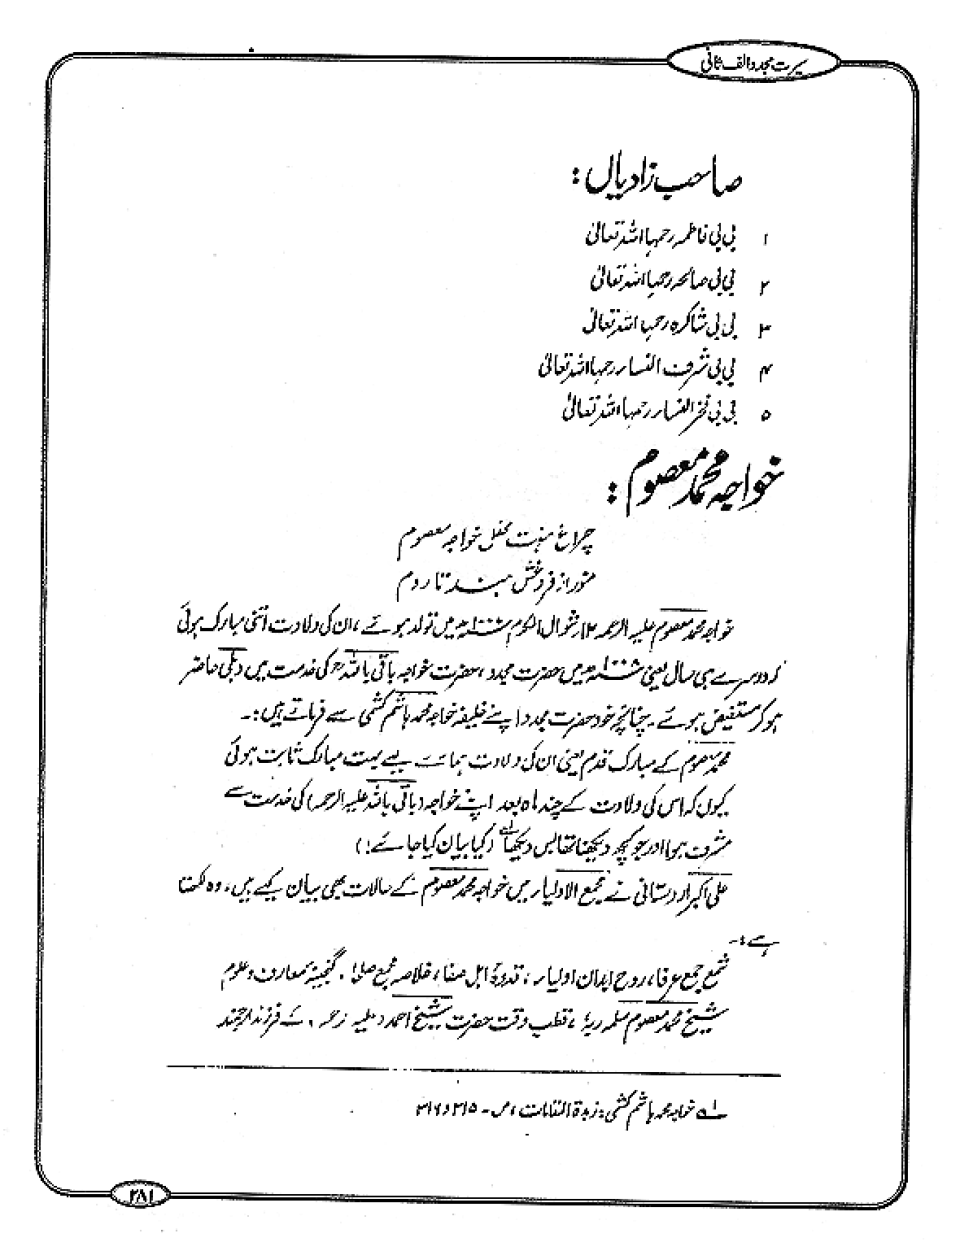 سیرت مجدد الف ثانی
صاحب زادیاں :
۱ بی بی فاطمہ رحمہا اللہ تعالیٰ
۲ بی بی صالحہ رحمہا اللہ تعالیٰ
۳ بی بی شاکرہ رحمہا اللہ تعالیٰ
۴ بی بی شرف النساء رحمہا اللہ تعالیٰ
۵ بی بی فخر النساء رحمہا اللہ تعالیٰ
خواجہ محمد معصوم :
چراغ ہفت محفل خواجہ معصوم
منور از فروغش ہند تا روم
خواجہ محمد معصوم علیہ الرحمہ شوال المکرم میں تولد ہوئے، ان کی ولادت اتنی مبارک ہوئی
کہ دوسرے ہی سال یعنی ۱۰۰۸ھ میں حضرت مجدد، حضرت خواجہ باقی باللہ کی خدمت میں دہلی حاضر
ہو کر مستفیض ہوئے۔ چنانچہ خود حضرت مجدد اپنے خلیفہ خواجہ محمد ہاشم کشمی سے فرماتے ہیں:۔
محمد معصوم کے مبارک قدم یعنی ان کی ولادت ہمارے لیے بہت مبارک ثابت ہوئی
کیوں کہ اس کی ولادت کے چند ماہ بعد اپنے خواجہ (باقی باللہ علیہ الرحمہ) کی خدمت سے
مشرف ہوا اور جو کچھ دیکھنا تھا بس دیکھا (کیا بیان کیا جائے!)
علی اکبر اردستانی نے مجمع الاولیاء میں خواجہ محمد معصوم کے حالات بھی بیان کیے ہیں، وہ لکھتا
ہے:۔
شمع جمع عرفا، روح ابدان اولیاء، قدوۂ اہل صفا، خلاصہ مجمع صلحا، گنجینۂ معارف و علوم
شیخ محمد معصوم سلمہ ربہ، قطب وقت حضرت شیخ احمد (علیہ رحمہ) کے فرزند ارجمند
۱ے خواجہ محمد ہاشم کشمی: زبدۃ المقامات، ص۔ ۳۱۵ و ۳۱۶
۲۸۱